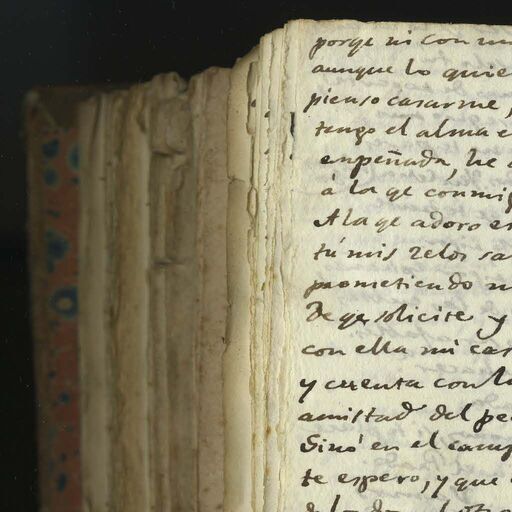 porqe ni con mi
aunque lo quie
pienso casarme,
tengo el alma e
enpeñada, he
á la qe conmi
A la qe adoro es
tú mis zelos sa
prometiendo
De qe solicite y
con ella mi cas
y cuenta con la
amistad del pe
Sinó en el camp
te espero, y que